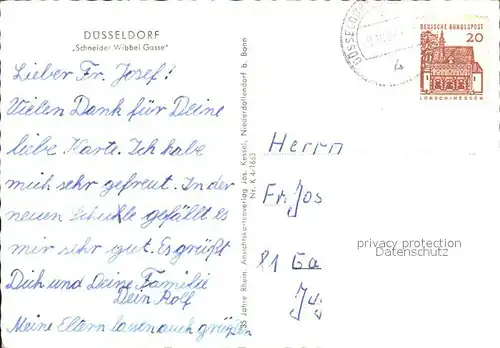 DÜSSELDORF
„Schneider Wibbel Gasse"
Lieber Fr. Josef!
Vielen Dank für Deine
liebe Karte. Ich habe
mich sehr gefreut. In der
neuen Schuhle gefällt es
mir sehr gut. Es grüßt
Dich und Deine Familie
Dein Rolf
Meine Eltern lassen auch grüßen
35 Jahre Rhein. Ansichtskartenverlag Jos. Kessel, Niederdollendorf b. Bonn
Nr. K 4/1663
DÜSSELDO
DEUTSCHE BUNDESPOST
20
LORSCH/HESSEN
Herrn
Fr. Jos
privacy protection
81 Ga